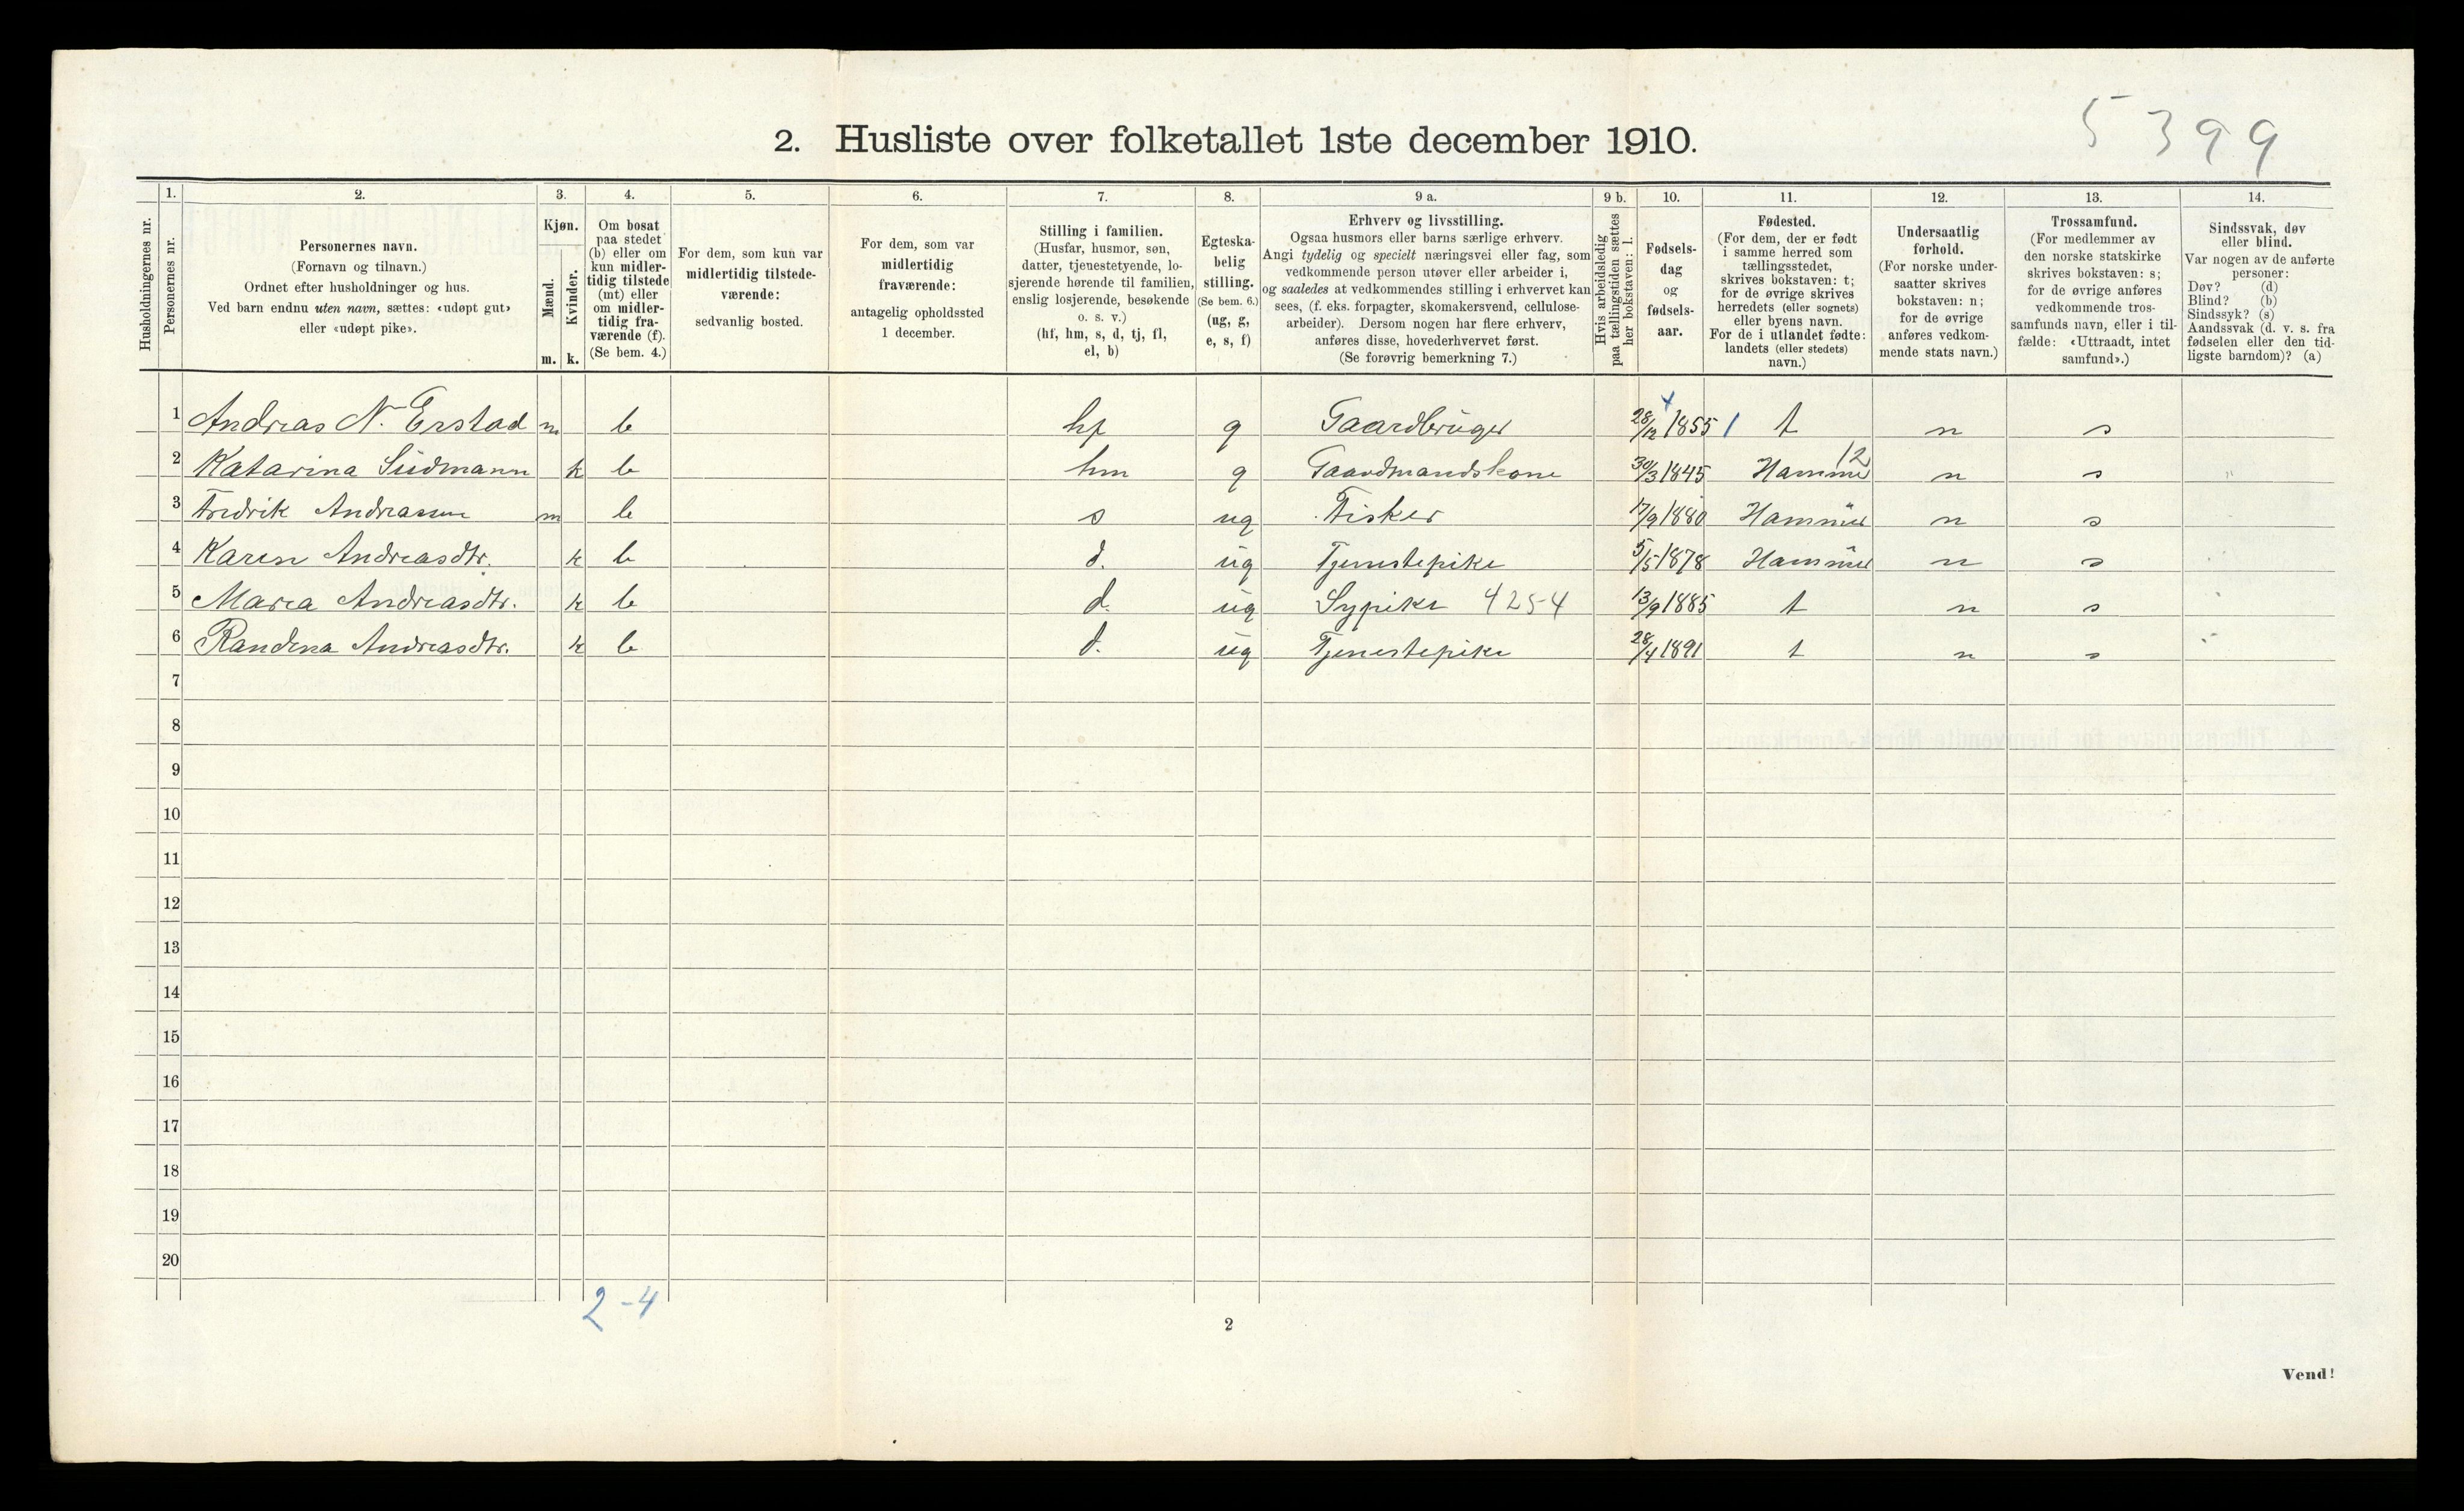 5399
2. Husliste over folketallet 1ste december 1910.
Husholdningernes nr.
1.
Personernes nr.
2.
Personernes navn.
(Fornavn og tilnavn.)
Ordnet efter husholdninger og hus.
Ved barn endnu uten navn, sættes: «udøpt gut»
eller «udøpt pike».
3.
Kjøn.
Mænd.
m.
Kvinder.
k.
4.
Om bosat
paa stedet
(b) eller om
kun midler-
tidig tilstede
(mt) eller
om midler-
tidig fra-
værende (f).
(Se bem. 4.)
5.
For dem, som kun var
midlertidig tilstede-
værende:
sedvanlig bosted.
6.
For dem, som var
midlertidig
fraværende:
antagelig opholdssted
1 december.
7.
Stilling i familien.
(Husfar, husmor, søn,
datter, tjenestetyende, lo-
sjerende hørende til familien,
enslig losjerende, besøkende
o. s. v.)
(hf, hm, s, d, tj, fl,
el, b)
8.
Egteska-
belig
stilling.
(Se bem. 6.)
(ug, g,
e, s, f)
9 a.
Erhverv og livsstilling.
Ogsaa husmors eller barns særlige erhverv.
Angi tydelig og specielt næringsvei eller fag, som
vedkommende person utøver eller arbeider i,
og saaledes at vedkommendes stilling i erhvervet kan
sees, (f. eks. forpagter, skomakersvend, cellulose-
arbeider). Dersom nogen har flere erhverv,
anføres disse, hovederhvervet først.
(Se forøvrig bemerkning 7.)
9 b.
Hvis arbeidsledig
paa tællingstiden sættes
her bokstaven: l.
10.
Fødsels-
dag
og
fødsels-
aar.
11.
Fødested.
(For dem, der er født
i samme herred som
tællingsstedet,
skrives bokstaven: t;
for de øvrige skrives
herredets (eller sognets)
eller byens navn.
For de i utlandet fødte:
landets (eller stedets)
navn.)
12.
Undersaatlig
forhold.
(For norske under-
saatter skrives
bokstaven: n;
for de øvrige
anføres vedkom-
mende stats navn.)
13.
Trossamfund.
(For medlemmer av
den norske statskirke
skrives bokstaven: s;
for de øvrige anføres
vedkommende tros-
samfunds navn, eller i til-
fælde: «Uttraadt, intet
samfund».)
14.
Sindssvak, døv
eller blind.
Var nogen av de anførte
personer:
Døv? (d)
Blind? (b)
Sindssyk? (s)
Aandssvak (d. v. s. fra
fødselen eller den tid-
ligste barndom)? (a)
1 Andreas N. Erstad m b hf g Gaardbruger 28/12 1855 1 t n s
2 Katarina Südmann k b hm g Gaardmandskone 30/3 1845 Hammer 12 n s
3 Fredrik Andreassen m b s ug Fisker 17/9 1880 Hammer n s
4 Karen Andreasdtr. k b d. ug Tjenestepike 5/5 1878 Hammer n s
5 Maria Andreasdtr. k b d. ug Sypike 4254 13/9 1885 t n s
6 Randina Andreasdtr. k b d. ug Tjenestepike 28/4 1891 t n s
7
8
9
10
11
12
13
14
15
16
17
18
19
20
2-4
2
Vend!